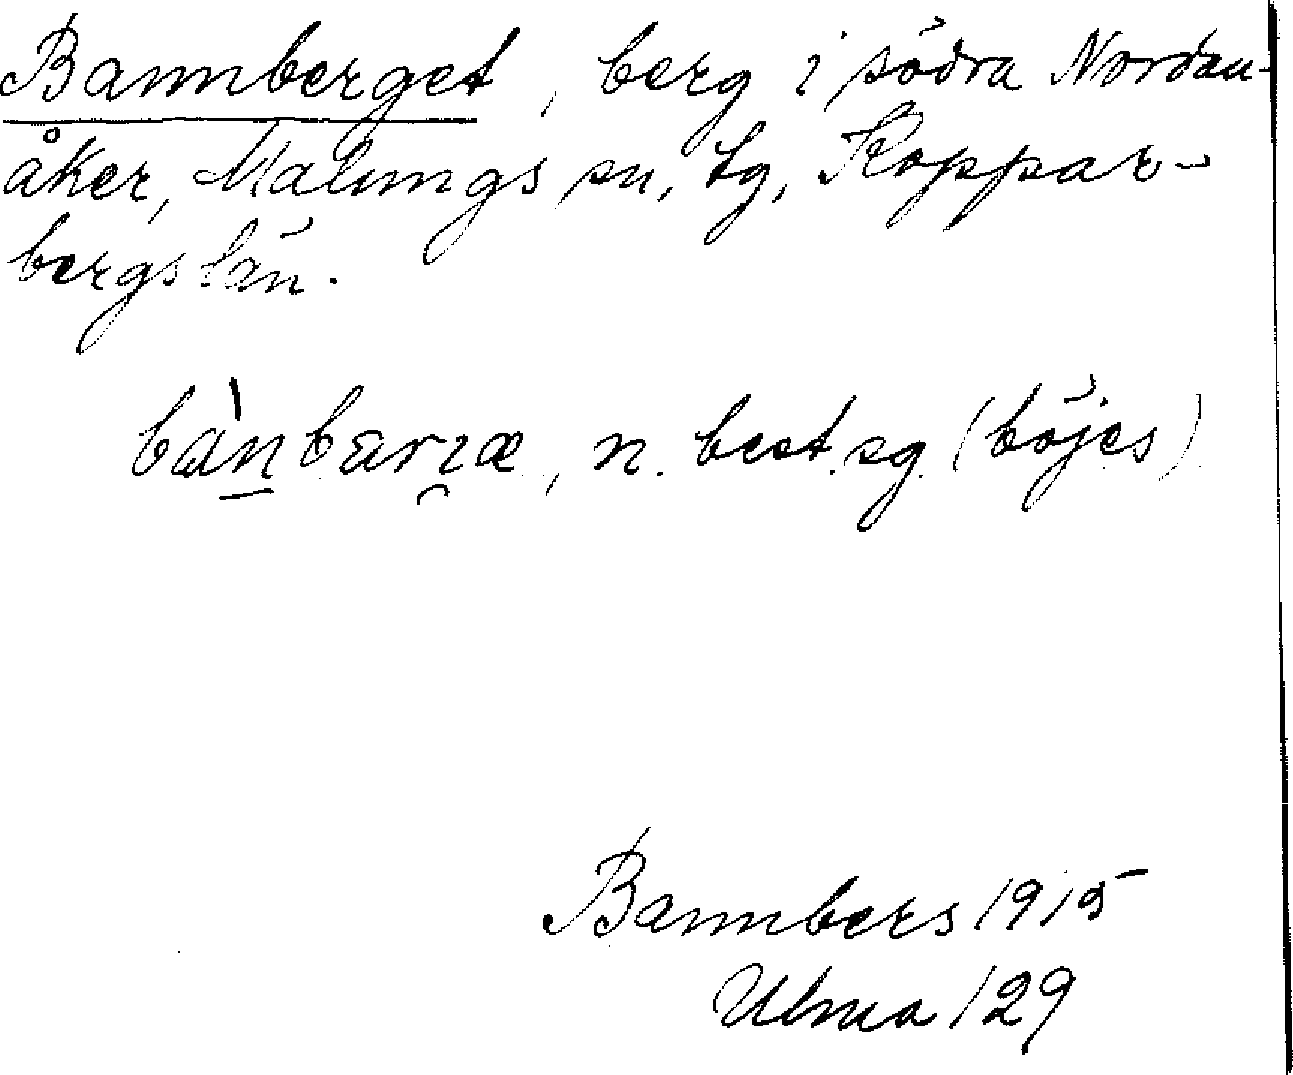 Bannberget, berg i södra Nordan-
åker, Malungs sn, tg, Koppar-
bergs län.
bànbærɿæ, n. best. sg. (böjes)
Bannbers 1915
Ulma 129